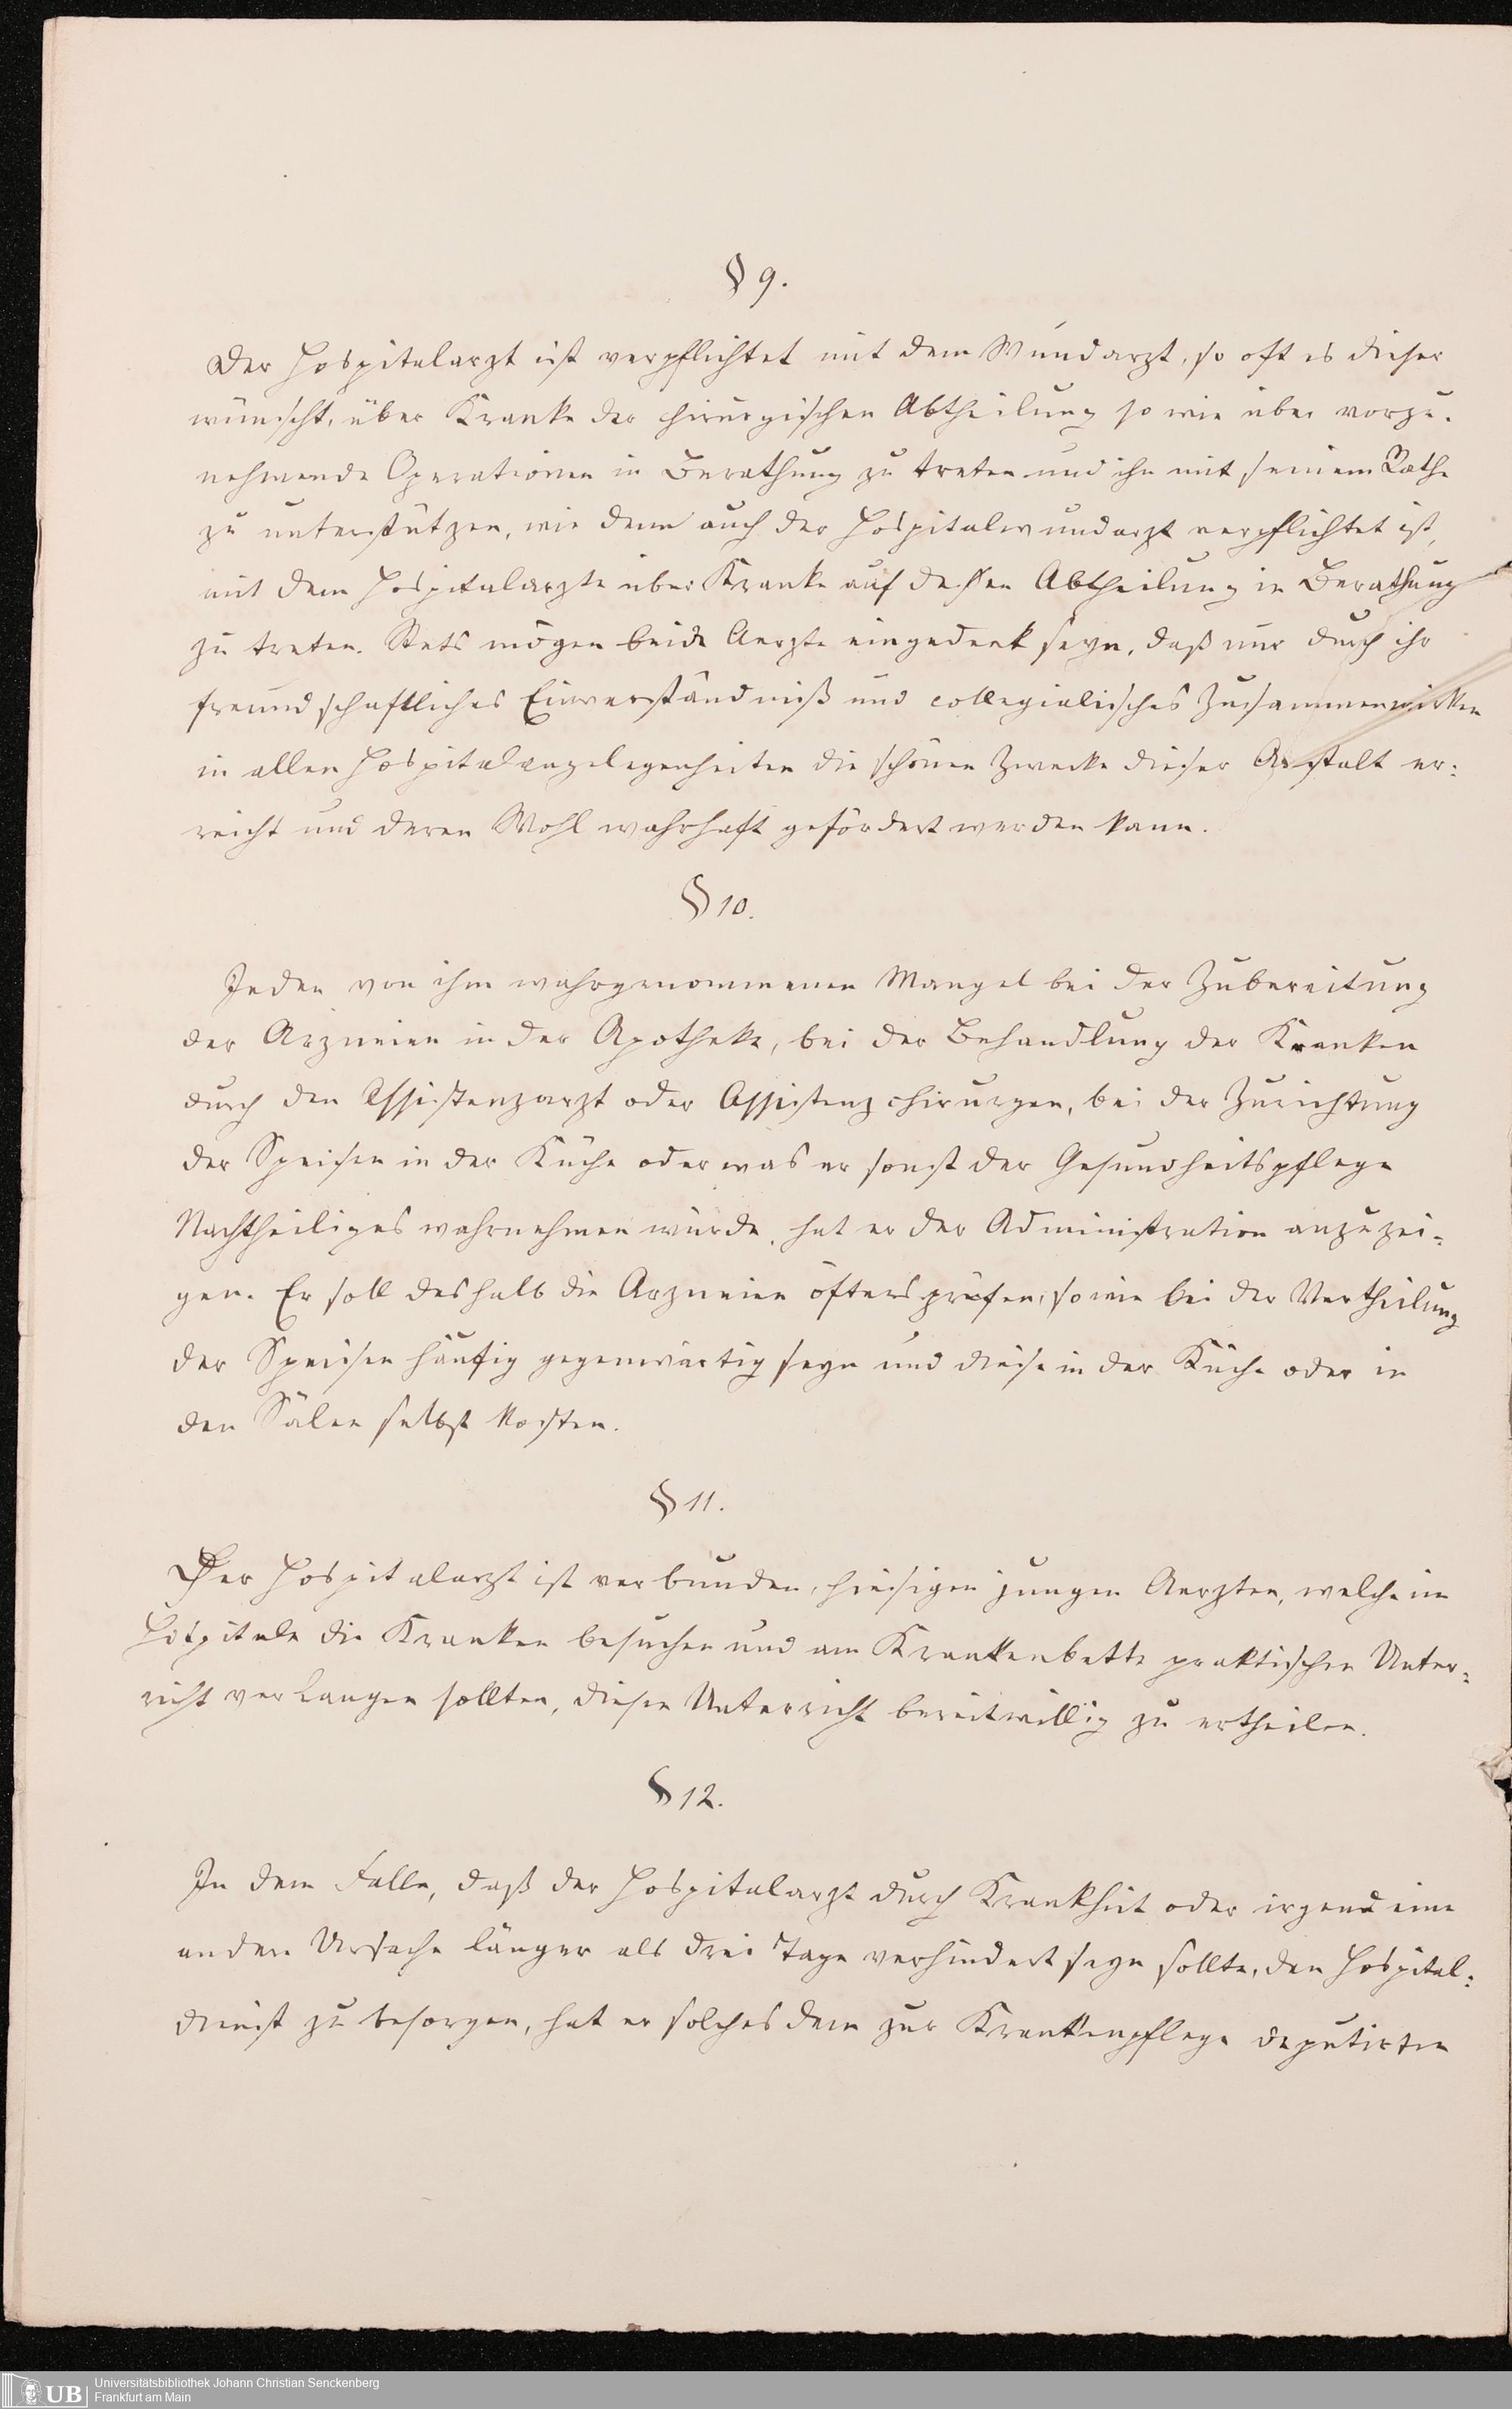 § 9.
Der Hospitalarzt ist verpflichtet mit dem Wundarzt, so oft es dieser
wünscht, über Kranke der chirurgischen Abtheilung so wie über vorzu-
nehmende Operationen in Berathung zu treten und ihn mit seinem Rathe
zu unterstützen, wie denn auch der Hospitalwundarzt verpflichtet ist,
mit dem Hospitalarzte über Kranke auf dessen Abtheilung in Berathung
zu treten. Stets mögen beide Aerzte eingedenk seyn, daß nur durch ihr
freundschaftliches Einverständniß und collegialisches Zusammenwirken
in allen Hospitalangelegenheiten die schönen Zwecke dieser Anstalt er-
reicht und deren Wohl wahrhaft gefördert werden kann.
§ 10.
Jeden von ihm wahrgenommenen Mangel bei der Zubereitung
der Arzneien in der Apotheke, bei der Behandlung der Kranken
durch den Assistenzarzt oder Assistenzchirurgen, bei der Zurichtung
der Speisen in der Küche oder was er sonst der Gesundheitspflege
Nachtheiliges wahrnehmen würde, hat er der Administration anzuzei-
gen. Er soll deshalb die Arzneien öfters prüfen, sowie bei der Vertheilung
der Speisen häufig gegenwärtig seyn und diese in der Küche oder in
den Sälen selbst kosten.
§ 11.
Der Hospitalarzt ist verbunden, hiesigen jungen Aerzten, welche im
Hospitale die Kranken besuchen und am Krankenbette praktischen Unter-
richt verlangen sollten, diesen Unterricht bereitwillig zu ertheilen.
§ 12.
In dem Falle, daß der Hospitalarzt durch Krankheit oder irgend eine
andere Ursache länger als drei Tage verhindert seyn sollte, den Hospital-
dienst zu besorgen, hat er solches dem zur Krankenpflege deputirten
UB
Universitätsbibliothek Johann Christian Senckenberg
Frankfurt am Main